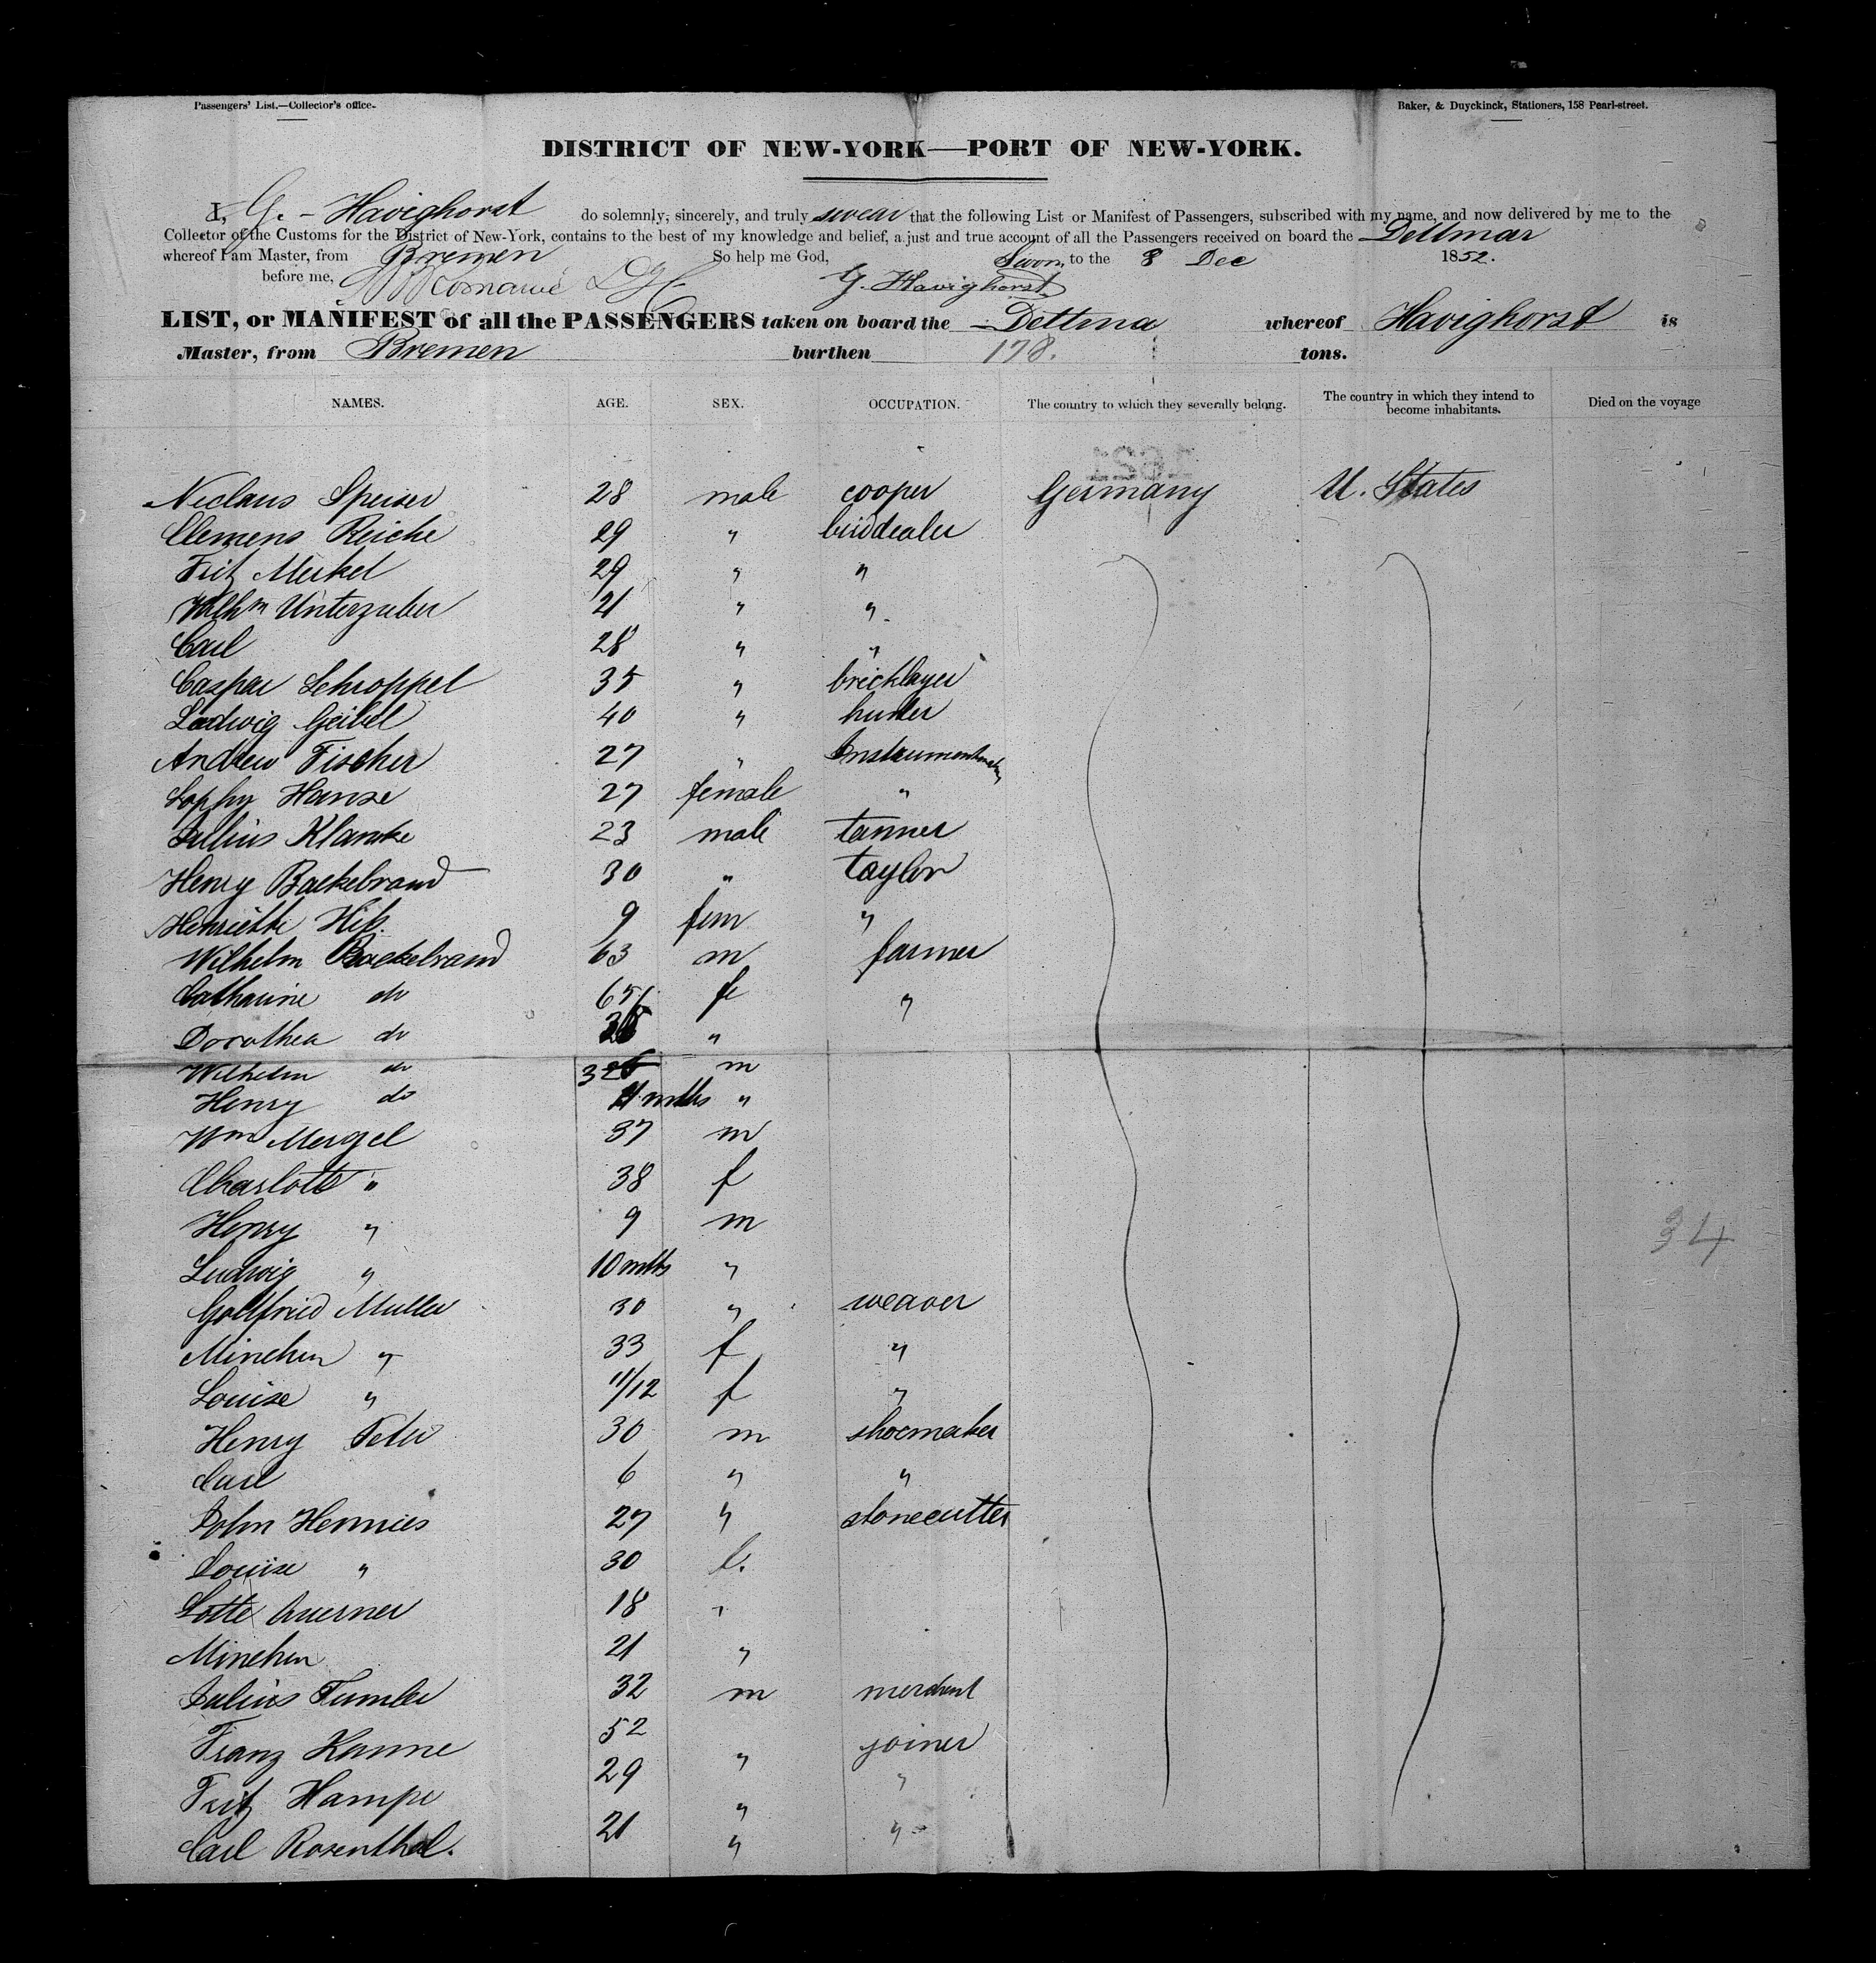 Passengers' List.—Collector's office.
Baker, & Duyckinck, Stationers, 158 Pearl-street.
DISTRICT OF NEW-YORK—PORT OF NEW-YORK.
I, G. - Havighorst do solemnly, sincerely, and truly swear that the following List or Manifest of Passengers, subscribed with my name, and now delivered by me to the
Collector of the Customs for the District of New-York, contains to the best of my knowledge and belief, a just and true account of all the Passengers received on board the Dettmar
whereof I am Master, from Bremen So help me God, Sworn to the 8 Dec 1852.
before me, G. Havighorst
LIST, or MANIFEST of all the PASSENGERS taken on board the Dettma whereof Havighorst is
Master, from Bremen burthen 178. tons.
NAMES. AGE. SEX. OCCUPATION. The country to which they severally belong. The country in which they intend to become inhabitants. Died on the voyage
Niclaus Speiser 28 male cooper Germany U. States
Clemens Reiche 29 " birddealer
Fritz Merkel 29 " "
Wilhm Unterzuber 21 " "
Carl 28 " "
Caspar Schroppel 35 " bricklayer
Ludwig Geibel 40 " hunter
Andrew Fischer 27 " Instrumentmaker
Sophy Hanse 27 female "
Julius Klamke 23 male tanner
Henry Backebrand 30 " taylor
Henriette 9 fem "
Wilhelm Backebrand 63 m farmer
Catharine do 65 fe "
Dorothea do "
Wilhelm do m
Henry do 11 mths "
Wm Mergel 37 m
Charlotte " 38 f
Henry " 9 m
Ludwig " 10 mths "
Gottfried Muller 30 " weaver
Minchen " 33 f "
Louise " 11/12 f "
Henry Peter 30 m shoemaker
Carl 6 " "
John Hennies 27 " stonecutter
Louise " 30 f.
Lotte 18 "
Minchen 21 "
Julius Tumler 32 m merchant
Franz Kanne 52 " joiner
Fritz Hampe 29 " "
Carl Rosenthal. 21 " "
34